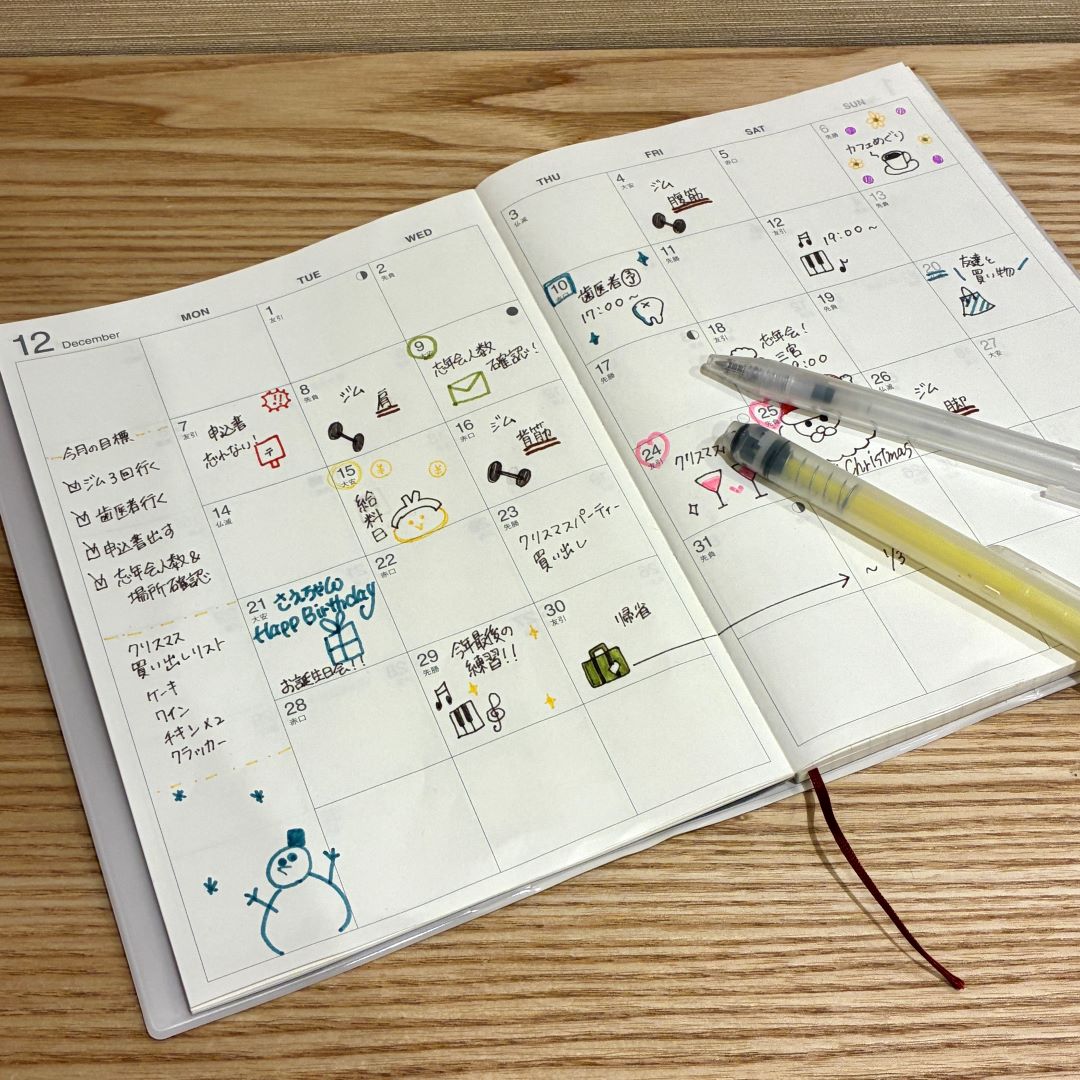 12 December
MON
TUE
WED
THU
FRI
SAT
SUN
今月の目標
ジム3回行く
歯医者行く
申込書出す
忘年会人数&
場所確認
クリスマス
買い出しリスト
ケーキ
ワイン
チキン×2
クラッカー
1
友引
2
先負
3
仏滅
4
大安
ジム
腹筋
5
赤口
6
先勝
カフェめぐり
7
友引
!!
申込書
忘れない!
〒
8
先負
ジム
肩
9
忘年会人数
確認!
10
歯医者予
17:00~
11
先勝
12
友引
19:00~
13
先負
14
仏滅
15
大安
給料日
16
赤口
ジム
背筋
17
先勝
18
忘年会!
三宮
:00
19
20
友達と
買い物
21
大安
さえちゃん
Happ Birthday
お誕生日会!!
22
赤口
23
先勝
クリスマスパーティー
買い出し
24
友引
クリスマス
25
Christmas
26
ジム
脚
27
大安
28
赤口
29
先勝
今年最後の
練習!!
30
友引
帰省
31
先負
~ 1/3